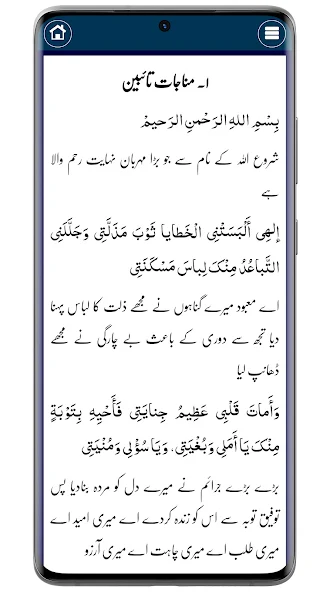 ۱۔ مناجات تائبین
بِسْمِ اللهِ الرَّحْمنِ الرَّحیمْ
شروع اللہ کے نام سے جو بڑا مہربان نہایت رحم والا
ہے
إلهِی أَلْبَسَتْنِی الْخَطایا ثَوْبَ مَذَلَّتِی وَجَلَّلَنِی
التَّباعُدُ مِنْکَ لِباسَ مَسْکَنَتِی
اے معبود میرے گناہوں نے مجھے ذلت کا لباس پہنا
دیا تجھ سے دوری کے باعث بے چارگی نے مجھے
ڈھانپ لیا
وَأَماتَ قَلْبِی عَظِیمُ جِنایَتِی فَأَحْیِهِ بِتَوْبَةٍ
مِنْکَ یَا أَمَلِی وَبُغْیَتِی، وَیَا سُؤْلِی وَمُنْیَتِی
بڑے بڑے جرائم نے میرے دل کو مردہ بنادیا پس
توفیق توبہ سے اس کو زندہ کردے اے میری امید اے
میری طلب اے میری چاہت اے میری آرزو